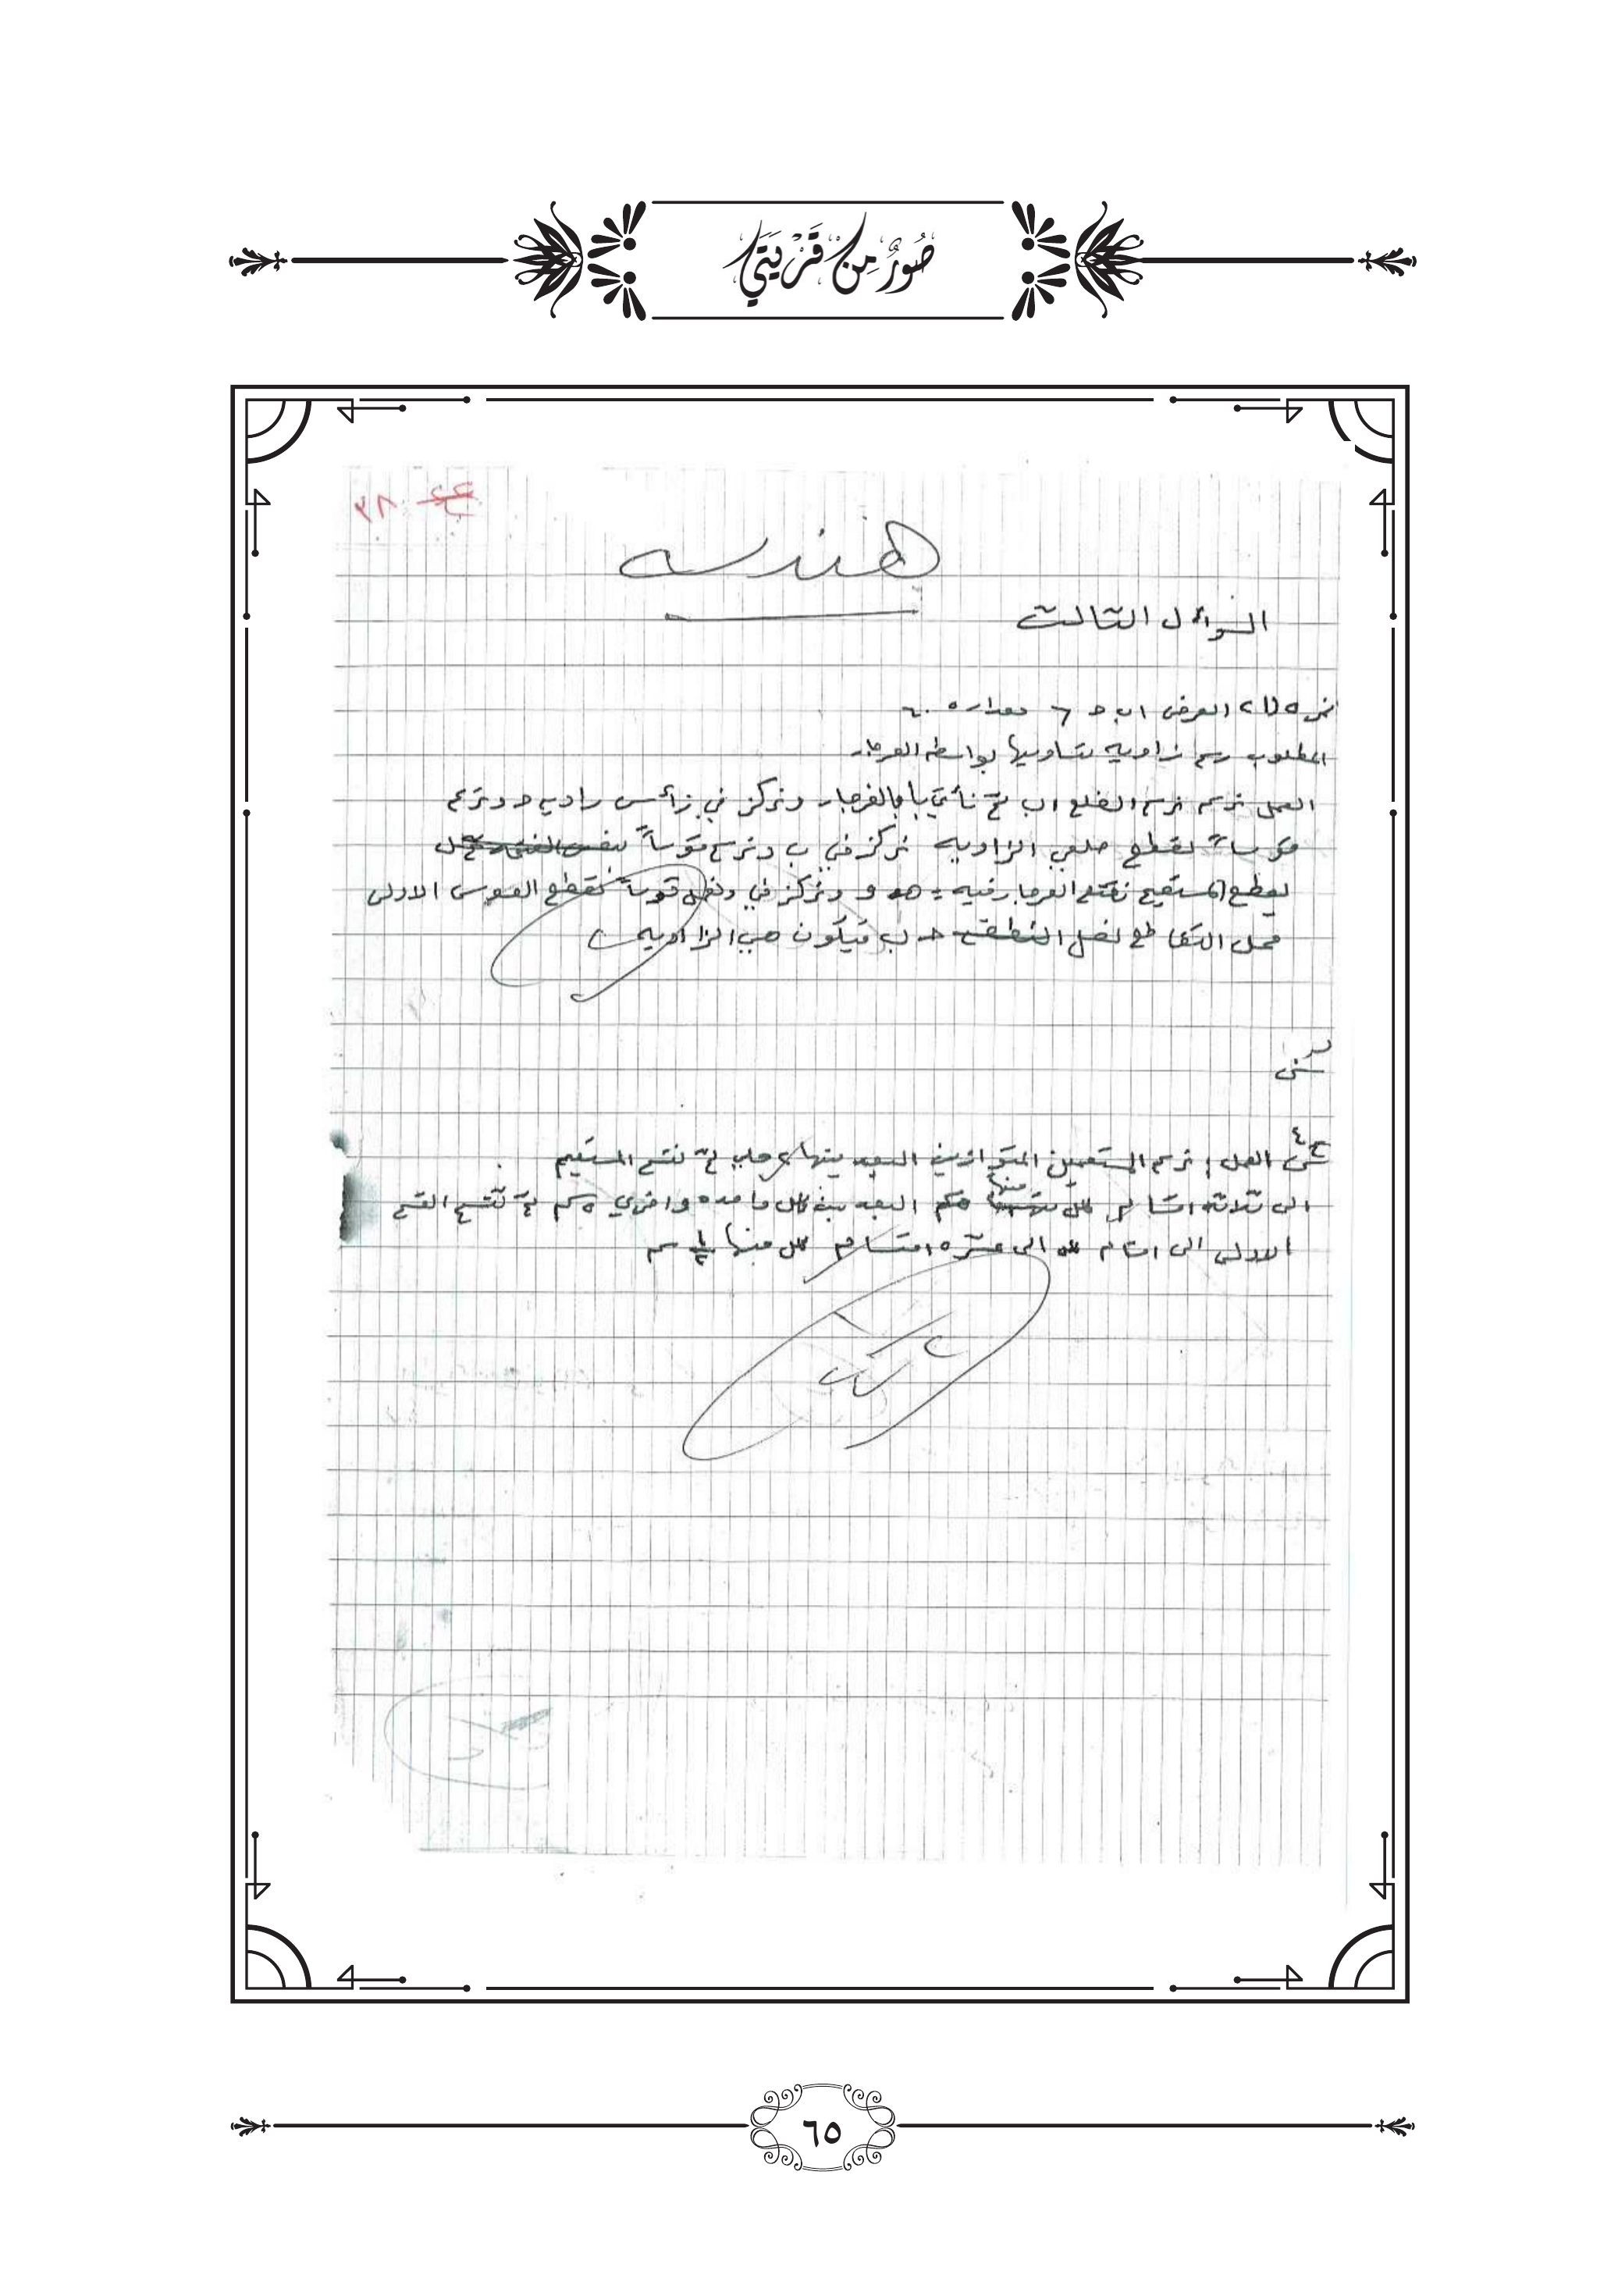 صُوَرٌ مِن قَرْيَتِي
٣٨
هندسه
السوأل الثالث
الفرض ا ب ح مقداره ٦٠
المطلوب رسم زاويه تساويها بواسطه الفرجار
العمل نرسم نرسم الضلع اب ثم نأتي بالفرجار ونركز في رأس زاويه ح ونرسم
قوساً يقطع ضلعي الزاويه نركز في ب ونرسم قوساً بنفس الفتحه
يقطع المستقيم نفتح الفرجار فتحه = هـ و ونركز في ونعمل قوساً يقطع القوس الاولى
محل التقاطع نصل النقطه ح ب فيكون هي الزاويه
ج٤
العمل نرسم المستقيمين المتوازيين البعد بينهما ثم نقسم المستقيم
الى ثلاثه اقسام كل منها سم البعد بين كل واحده واخرى ٥ سم ثم نقسم القسم
الاولى الى اقسام الى عشره اقسام كل منها ١/٢ سم
٦٥